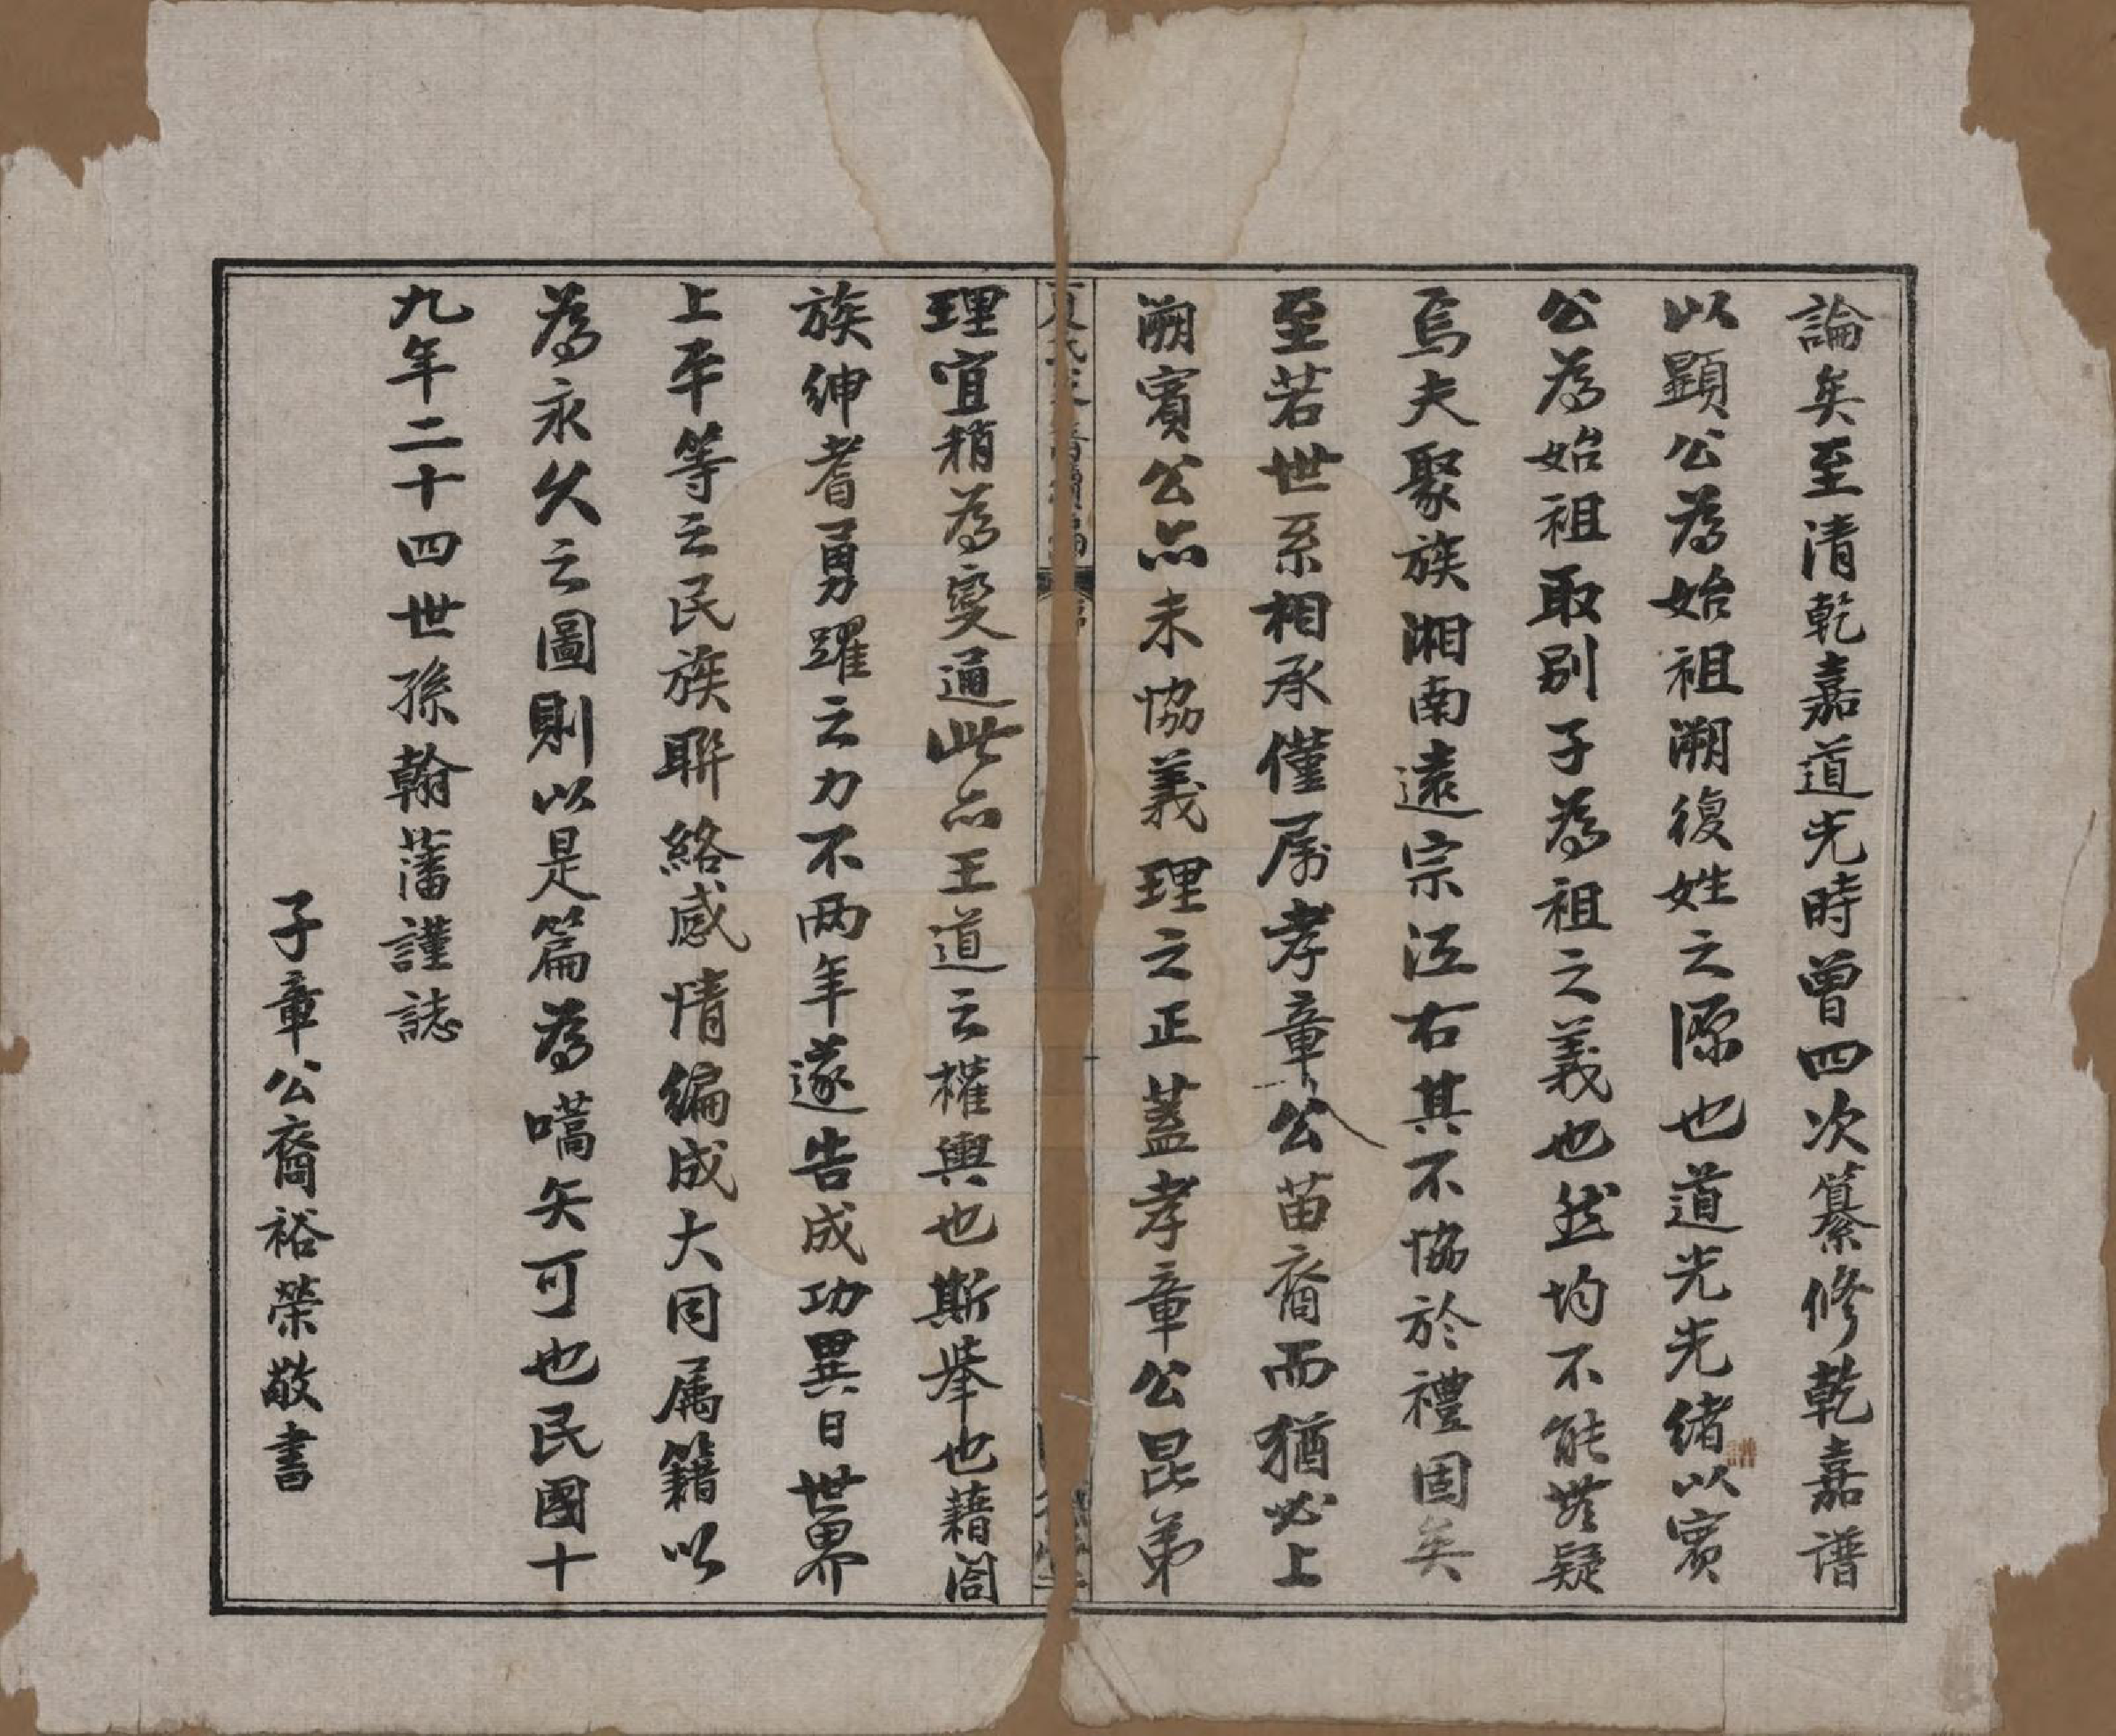 論矣至清乾嘉道光時曾四次纂修乾嘉譜
以顯公為始祖溯復姓之源也道光光緒以賓
公為始祖取別子為祖之義也然均不能無疑
焉夫聚族湘南遠宗江右其不協於禮固矣
至若世系相承僅屬孝章公苗裔而猶必上
溯賓公亦未協義理之正蓋孝章公昆弟
理宜稍為變通此亦王道之權輿也斯舉也藉閤
族紳耆勇躍之力不两年遂告成功異日世界
上平等之民族聯絡感情編成大同属籍以
為永久之圖則以是篇為嚆矢可也民國十
九年二十四世孫翰藩謹誌
子章公裔裕榮敬書